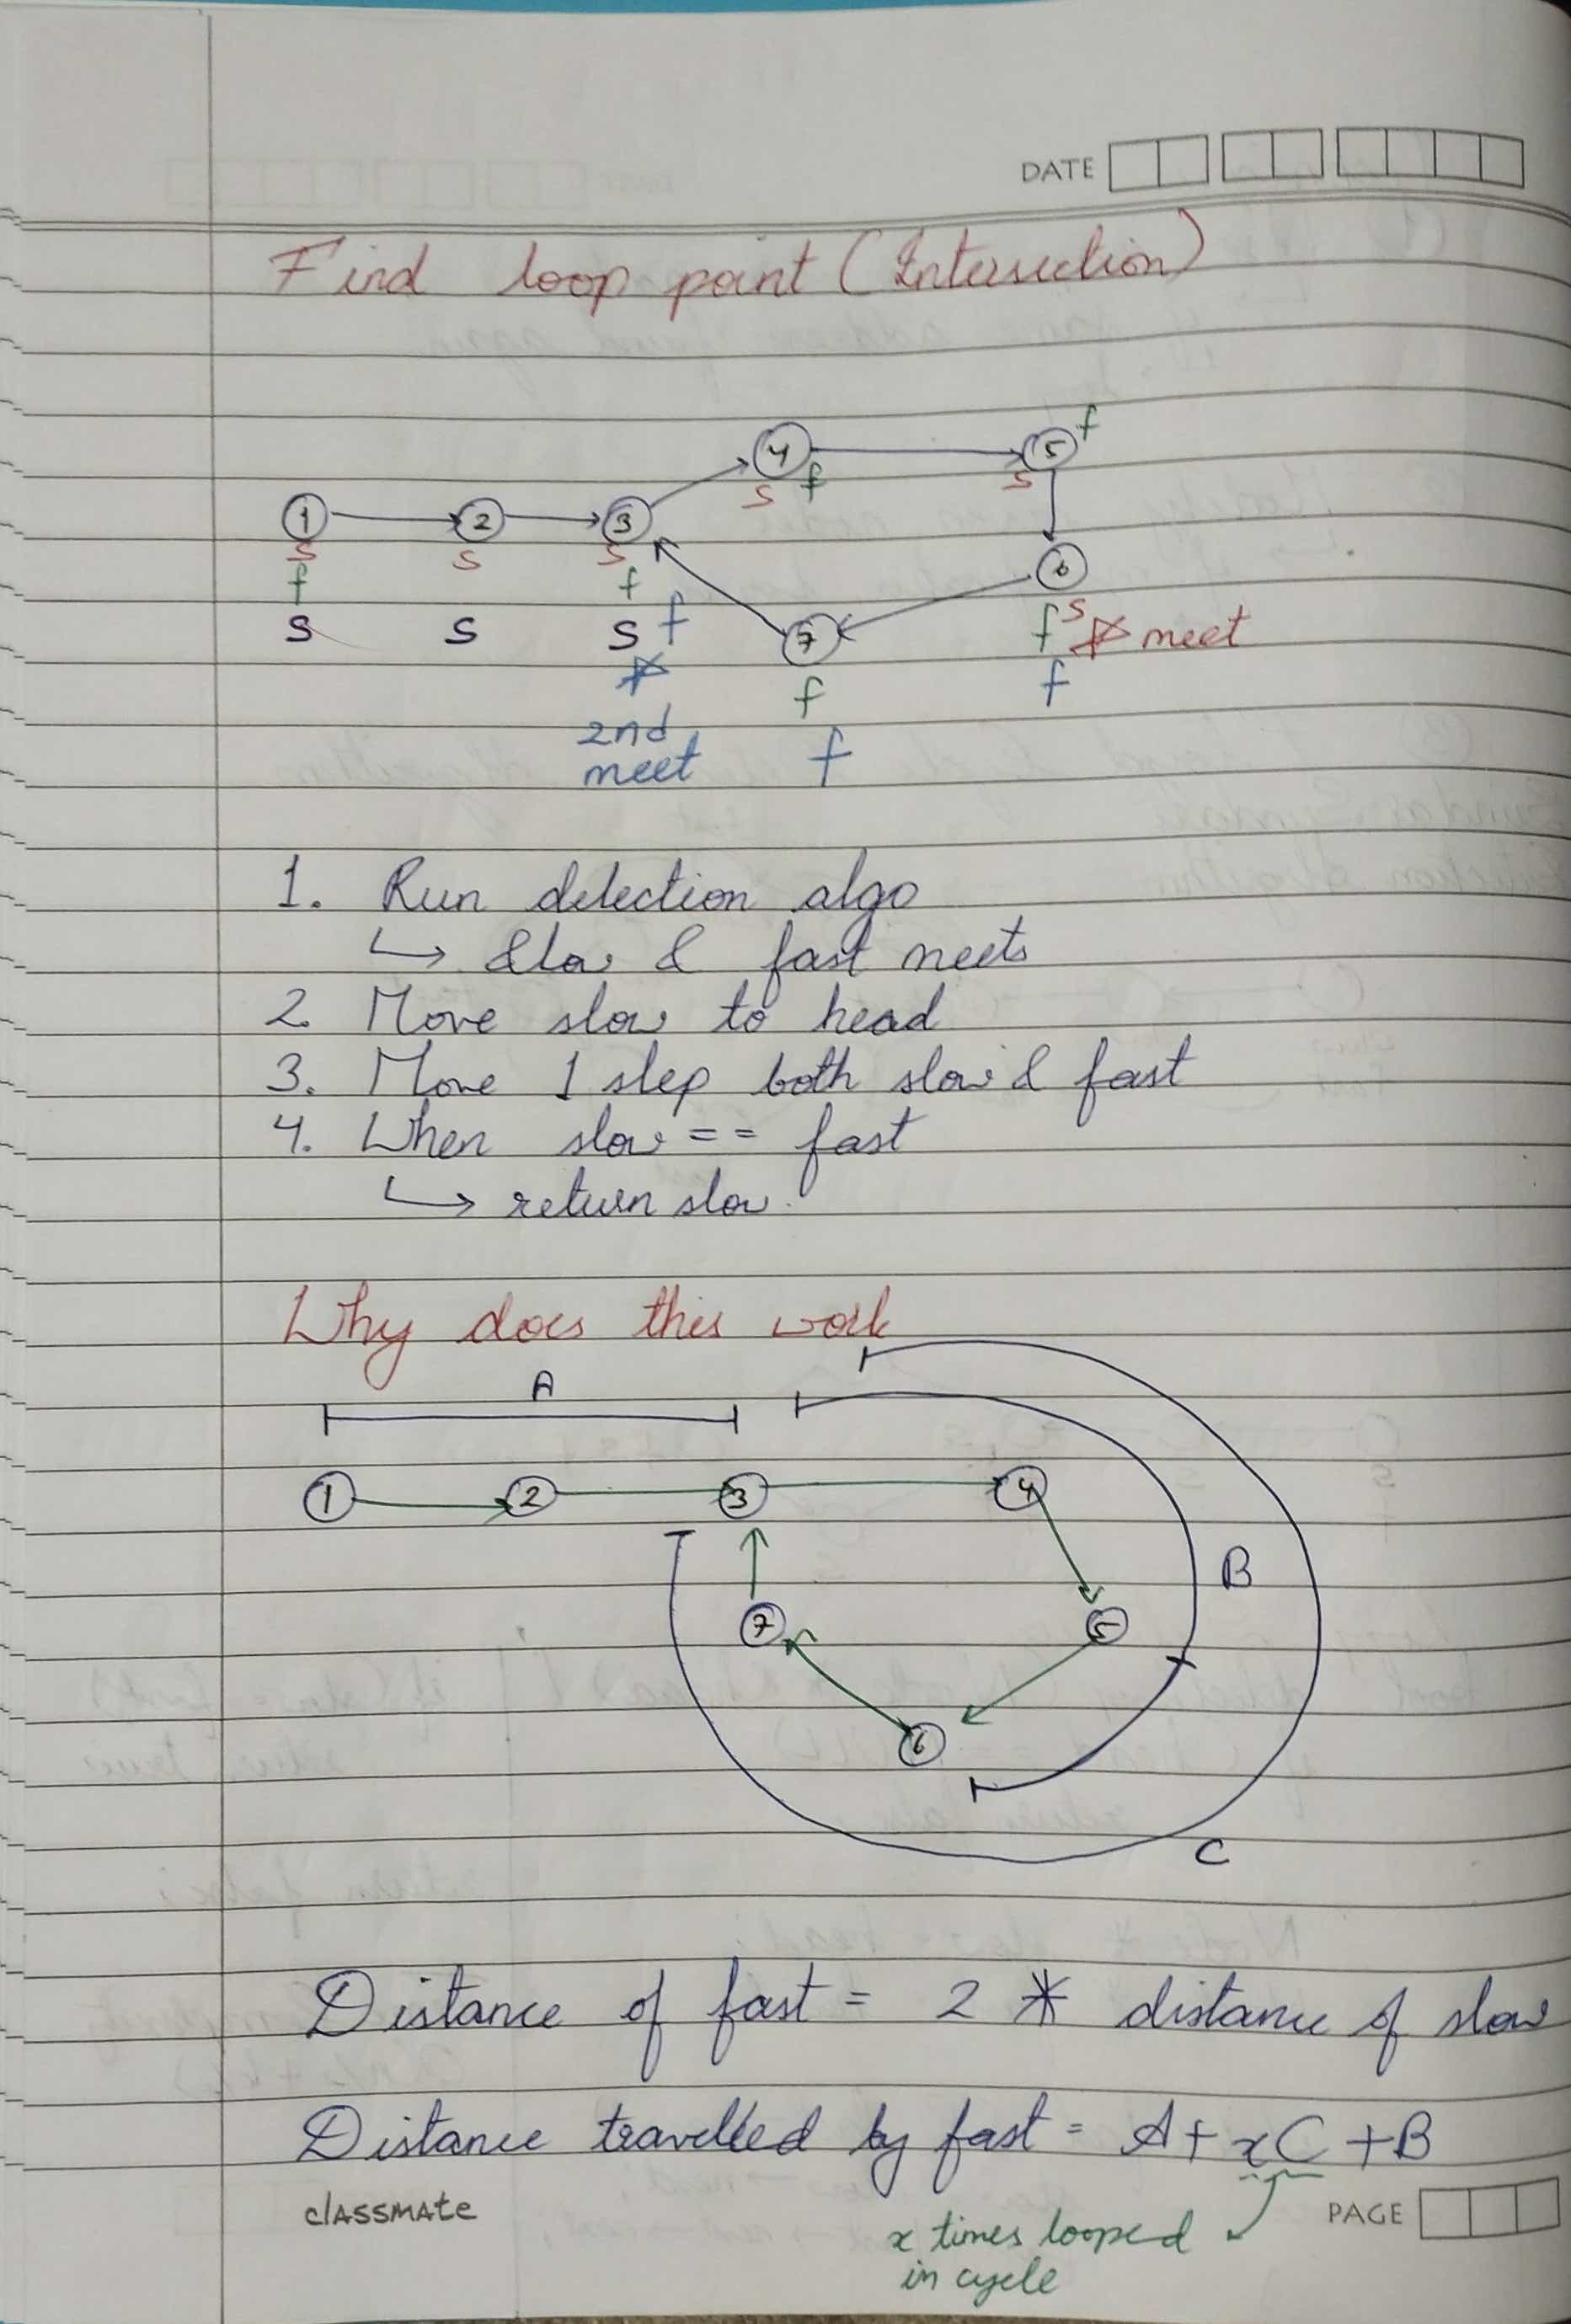 DATE
Find loop point (Intersection)
4 5 f
s f s
1 2 3
s s s 6
f f s
s s s f 7 f meet
f f
2nd
meet f
1. Run detection algo
↳ slow & fast meets
2. Move slow to head
3. Move 1 step both slow & fast
4. When slow == fast
↳ return slow.
Why does this work
A
1 2 3 4
B
7 5
6
C
Distance of fast = 2 * distance of slow
Distance travelled by fast = A + xC + B
classmate
PAGE
x times looped
in cycle